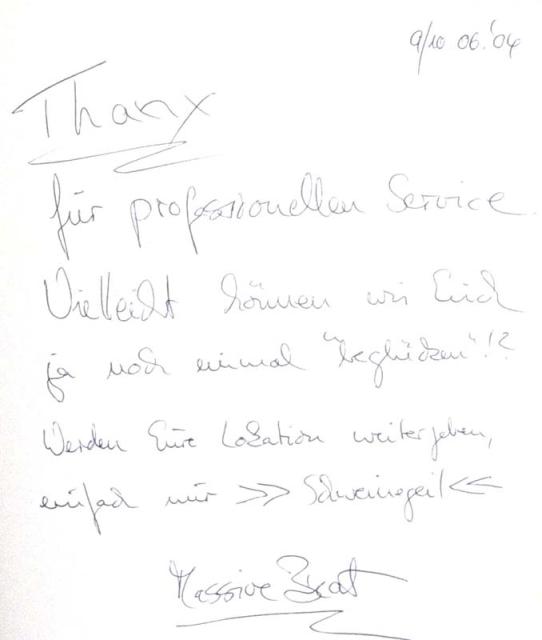 9/10 06.'04
Thanx
für professionellen Service.
Vielleicht können wir Euch
ja noch einmal "beglücken"!?
Werden Eure Lokation weitergeben,
einfach nur >> Schweinegeil <<
Massive Beat